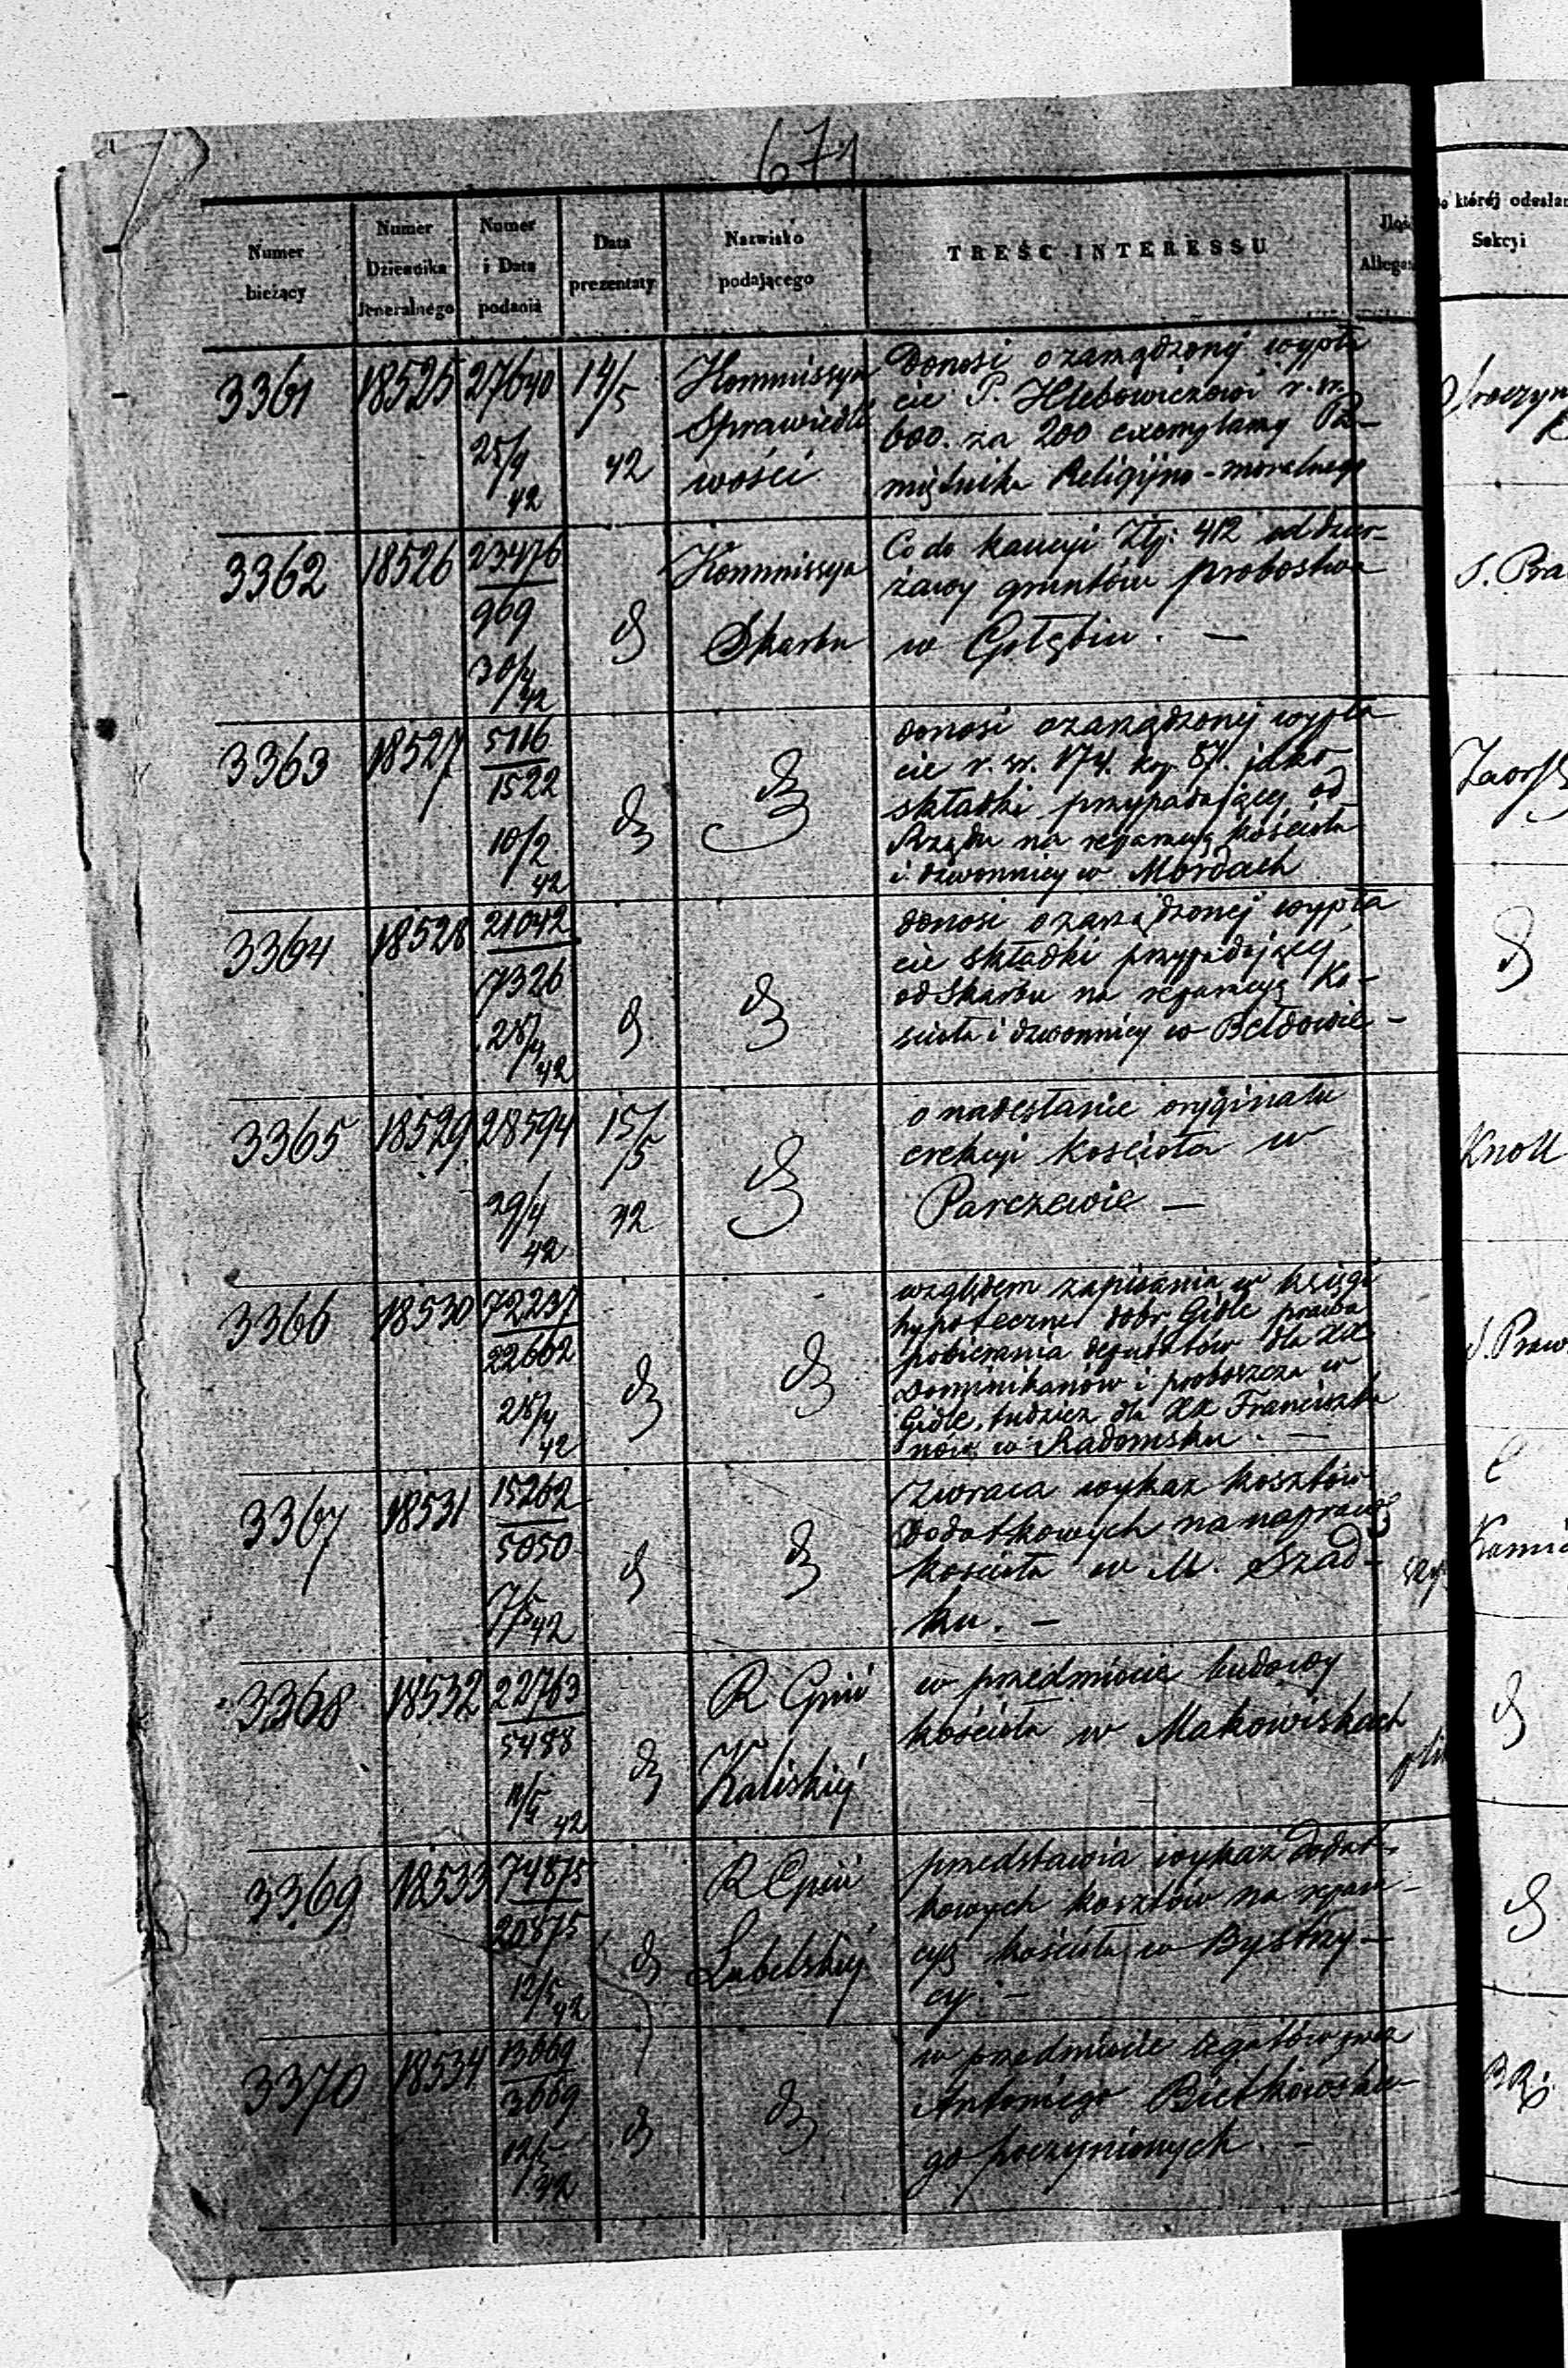 671
Numer bieżący
Numer Dziennika Jeneralnego
Numer i Data podania
Data prezentaty
Nazwisko podającego
TREŚC INTERESSU
której odesłan
Sekcyi
3361 18525 27640 25/4 42 14/5 42
Kommissya
Sprawiedli
wości
Donosi o zarządzonej wypła
cie P. Hlebowiczowi r. sr.
600. za 200 exemplarzy Pa-
miętnika Religijno-moralnego
3362 18526 23476 969 30/4 42
Kommissya
Skarbu
S. Pra
Co do kaucyi Złp: 412 od dzier-
żawy gruntów probostwa
w Gołębiu. —
3363 18527 5116 1522 10/2 42
donosi o zarządzonej wypła
cie r. sr. 174. kop. 87. jako
składki przypadającej od
Rządu na reparacyą kościoła
i dzwonnicy w Mordach
3364 18528 21042 7326 28/4 42
donosi o zarządzonej wypła
cie składki przypadającej
od Skarbu na reparacyą Ko-
ścioła i dzwonnicy w Bełdowie —
3365 18529 28594 29/4 42 15/5 42
o nadesłanie oryginału
erekcyi kościoła w
Parczewie —
Knoll
3366 18530 72237 22602 28/4 42
względem zapisania w księgi
hypoteczne dóbr Gidle prawa
pobierania deputatów dla XX
Dominikanów i proboszcza w
Gidle, tudzież dla XX Franciszka
nów w Radomsku. —
S. Praw
3367 18531 15262 5050 7/5 42
Zwraca wykaz kosztów
dodatkowych na naprawę
kościoła w M. Szad-
ku. —
3368 18532 22763 5488 11/5 42
R Gnii
Kaliskiej
w przedmiocie budowy
kościoła w Makowiskach
3369 18533 74875 20875 12/5 42
R Gnii
Lubelskiej
przedstawia wykaz dodat-
kowych kosztów na repara-
cyą kościoła w Bystrzy-
cy. —
3370 18534 13669 3669 12/5 42
w przedmiocie legatów przez
Antoniego Bieńkowskie-
go poczynionych. —